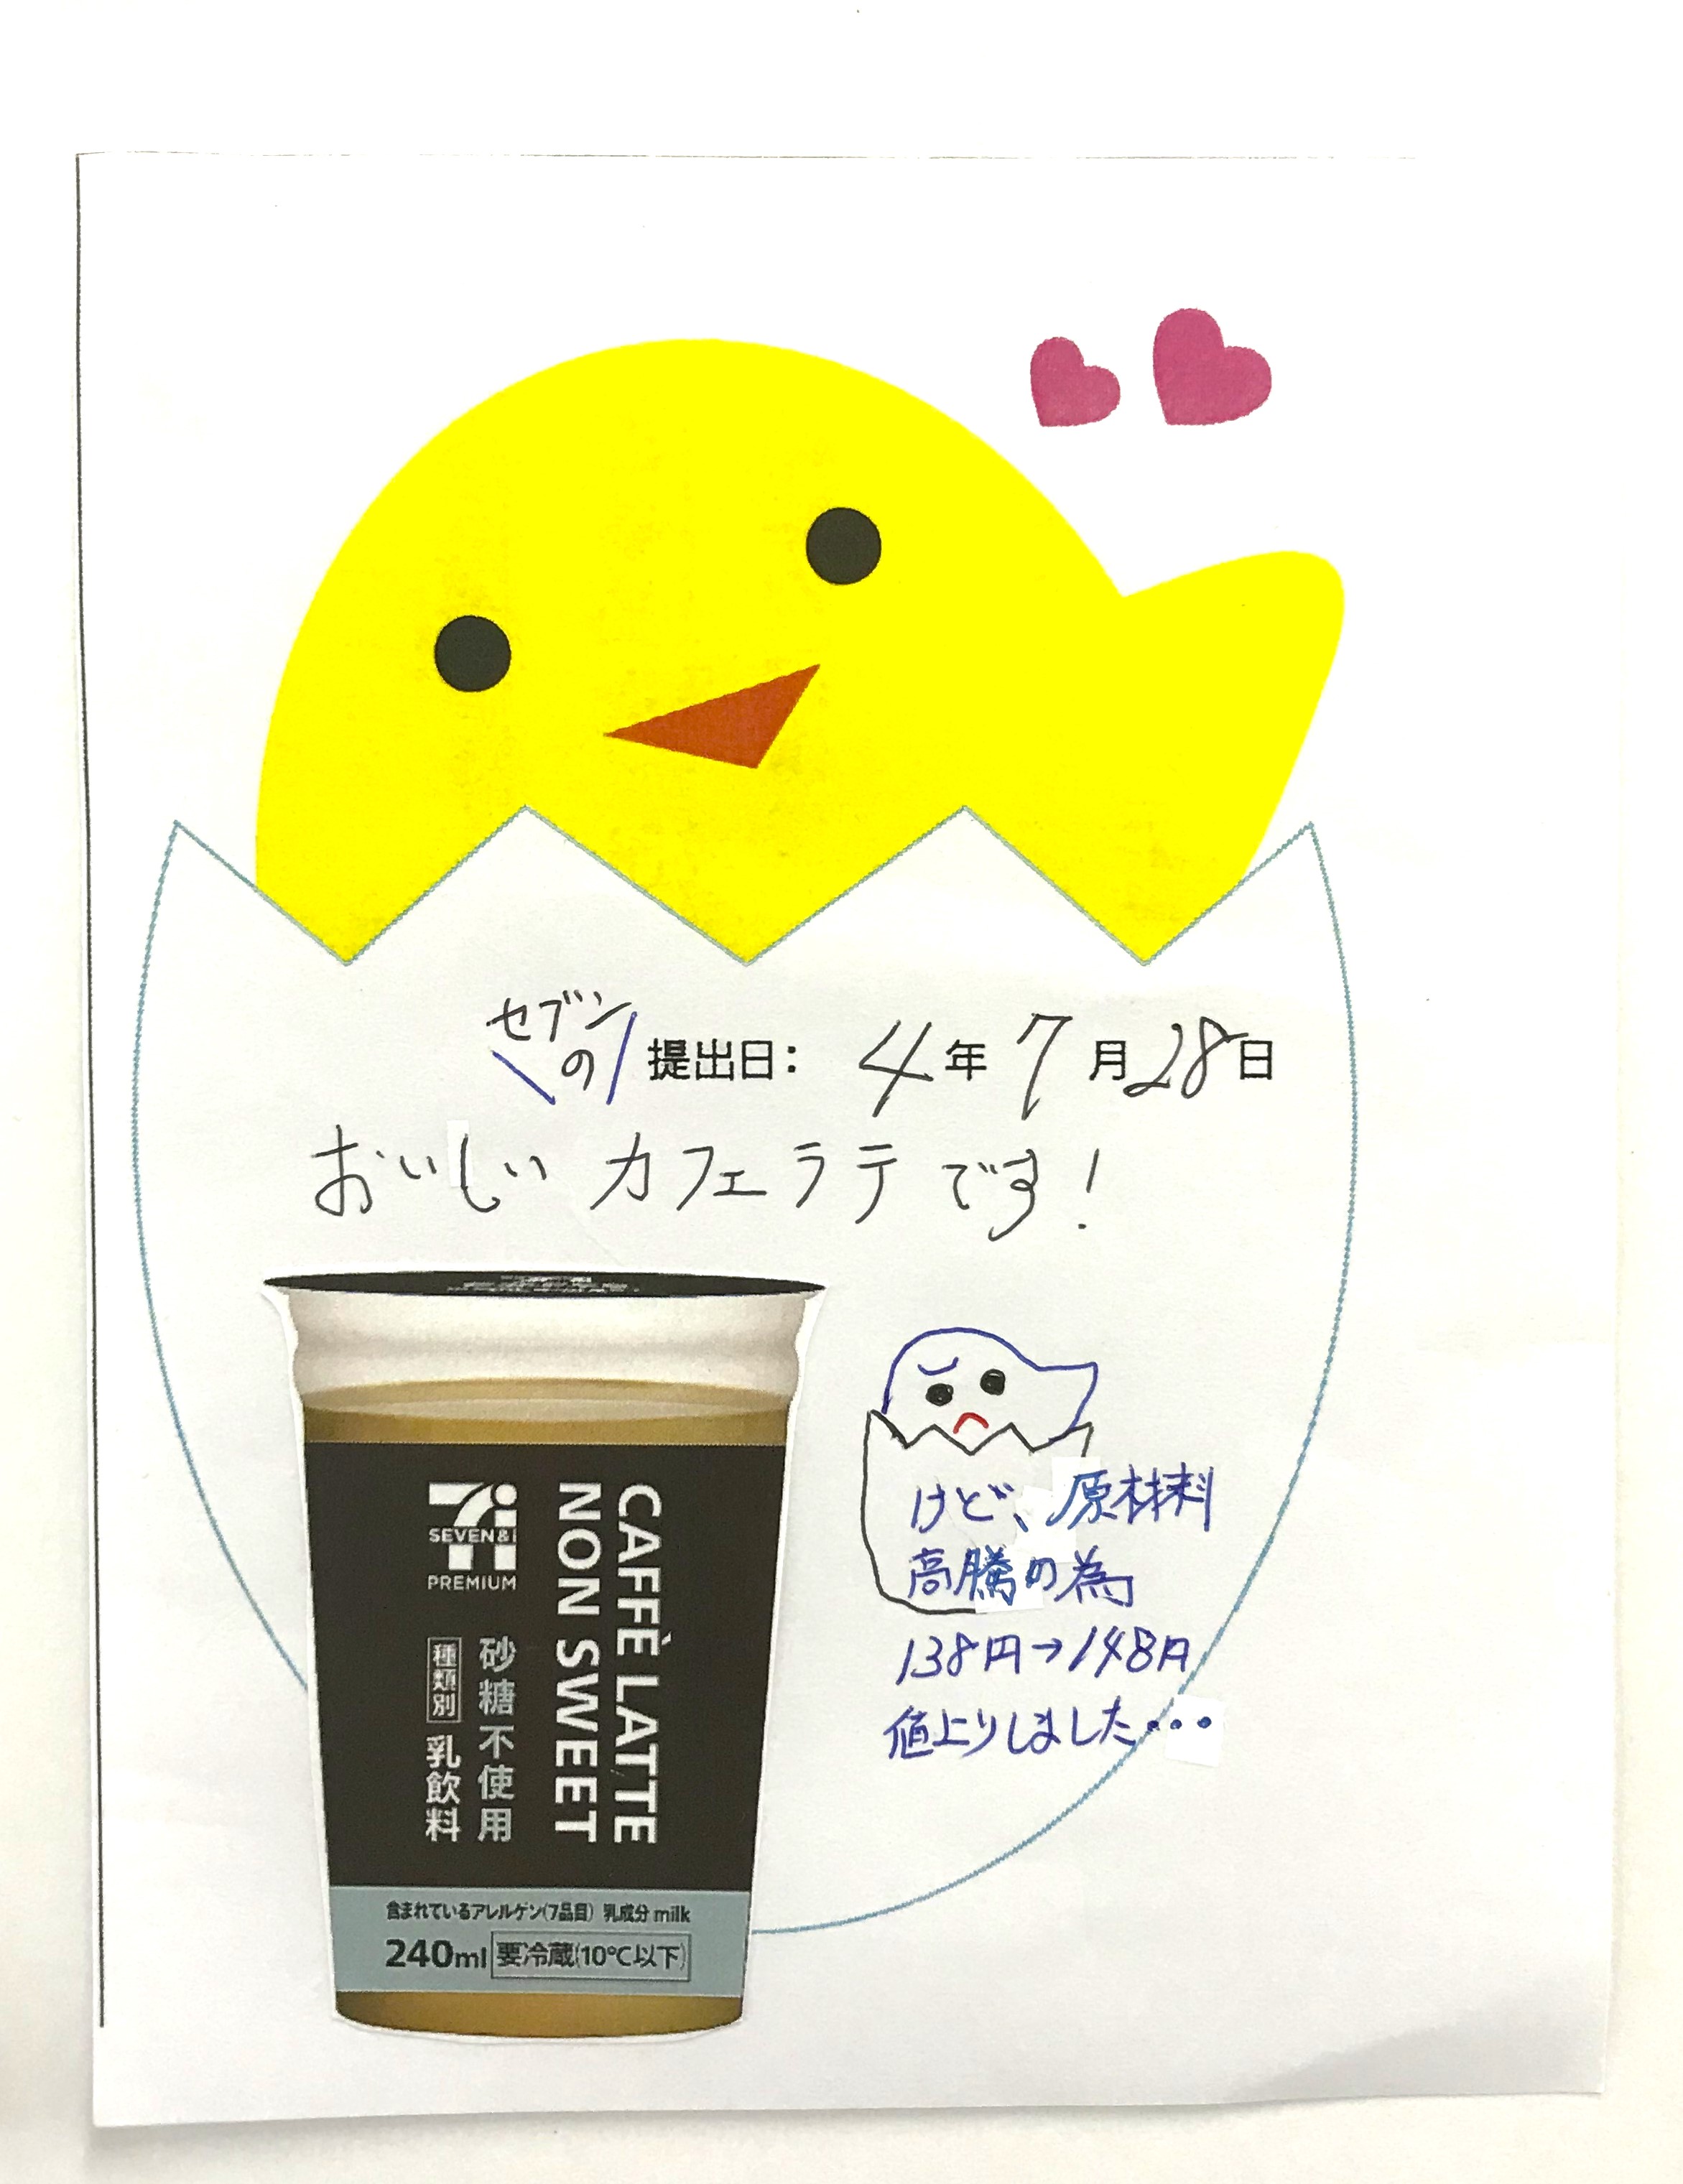 セブン
の
提出日: 4年7月28日
おいしいカフェラテです!
CAFFÈ LATTE
NON SWEET
SEVEN&i
PREMIUM
砂糖不使用
種類別 乳飲料
含まれているアレルゲン(7品目) 乳成分 milk
240ml 要冷蔵(10℃以下)
けど、原材料
高騰の為
138円→148円
値上りしました・・・